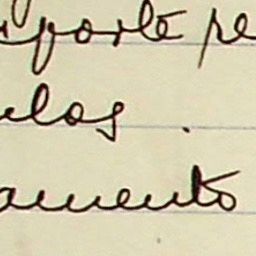 porte pe
los
amento